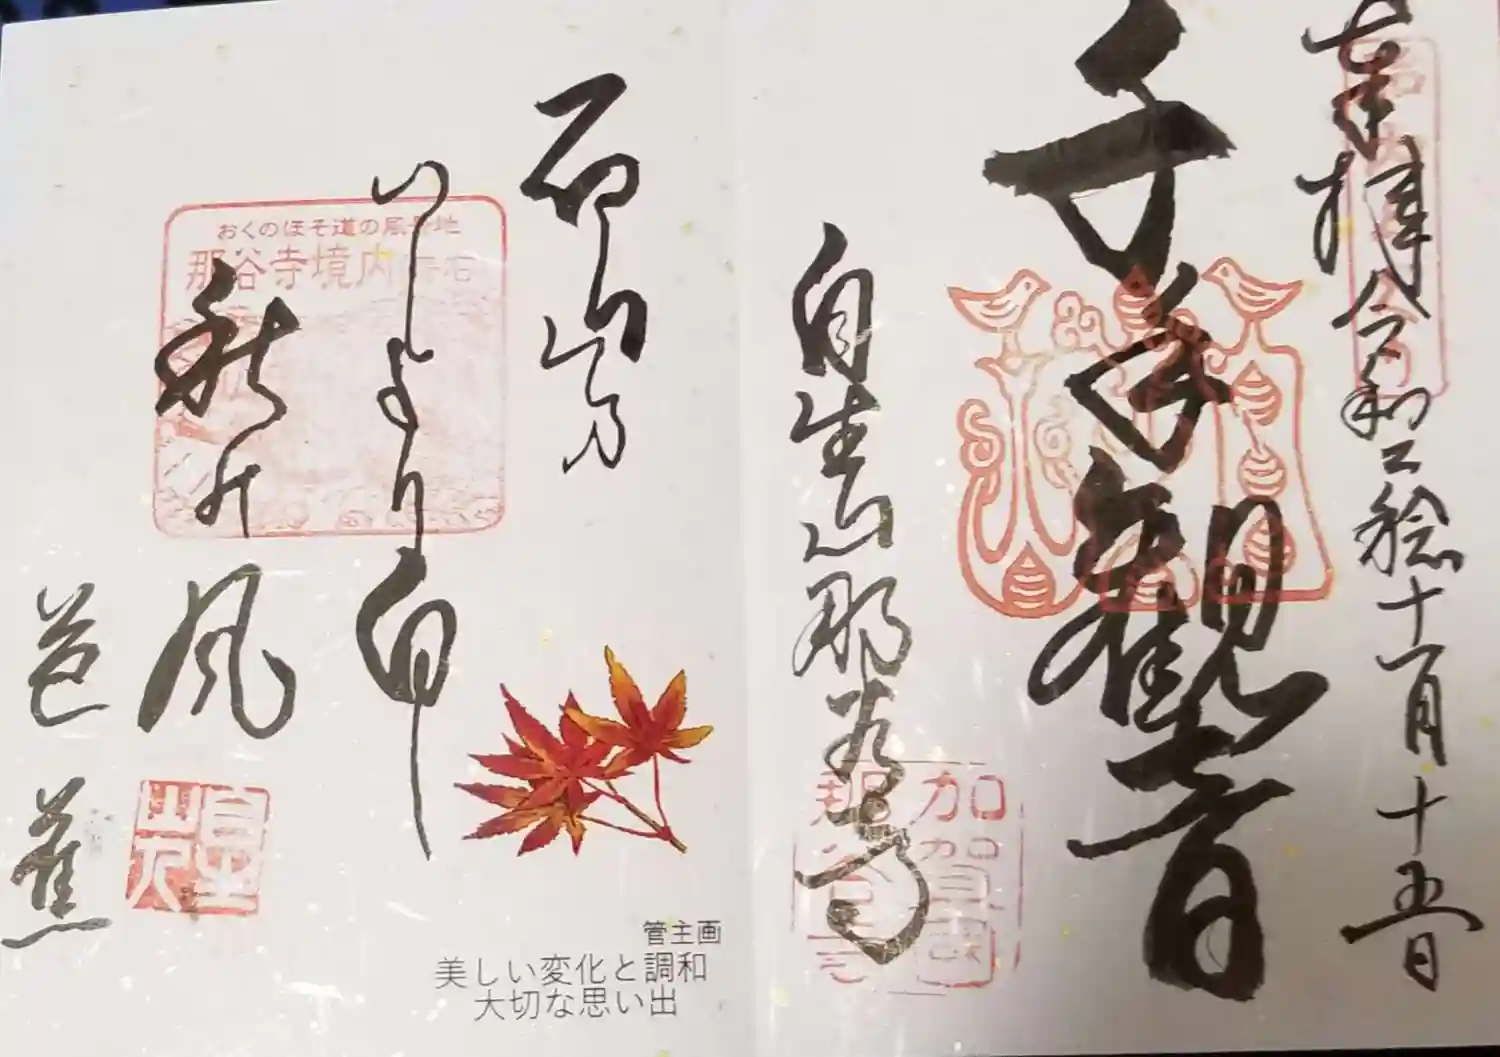 奉拝 令和二稔十一月十五日
千手観音
自生山 那谷寺
加賀國
那谷寺
石山乃
いしより白し
秋の風
芭蕉
おくのほそ道の風景地
那谷寺境内
管主画
美しい変化と調和
大切な思い出